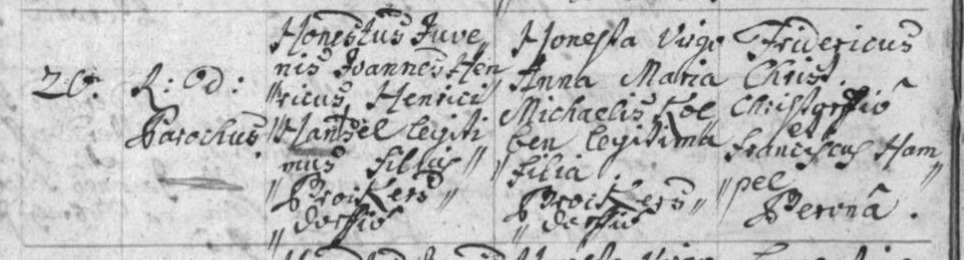 20.
R: D:
Parochus.
Honestus Juve„
nis Joannes Hen„
„ricus, Henrici
„Hantsel legiti„
mus filius
Broikers„
„dorffio
Honesta Virgo
Anna Maria
Michaelis Kol„
ben legitima
filia.
Broikers„
„dorffio
Fridericus
Christ.
Christorffiõ
et
Franciscus Ham„
„pel
Peronâ.